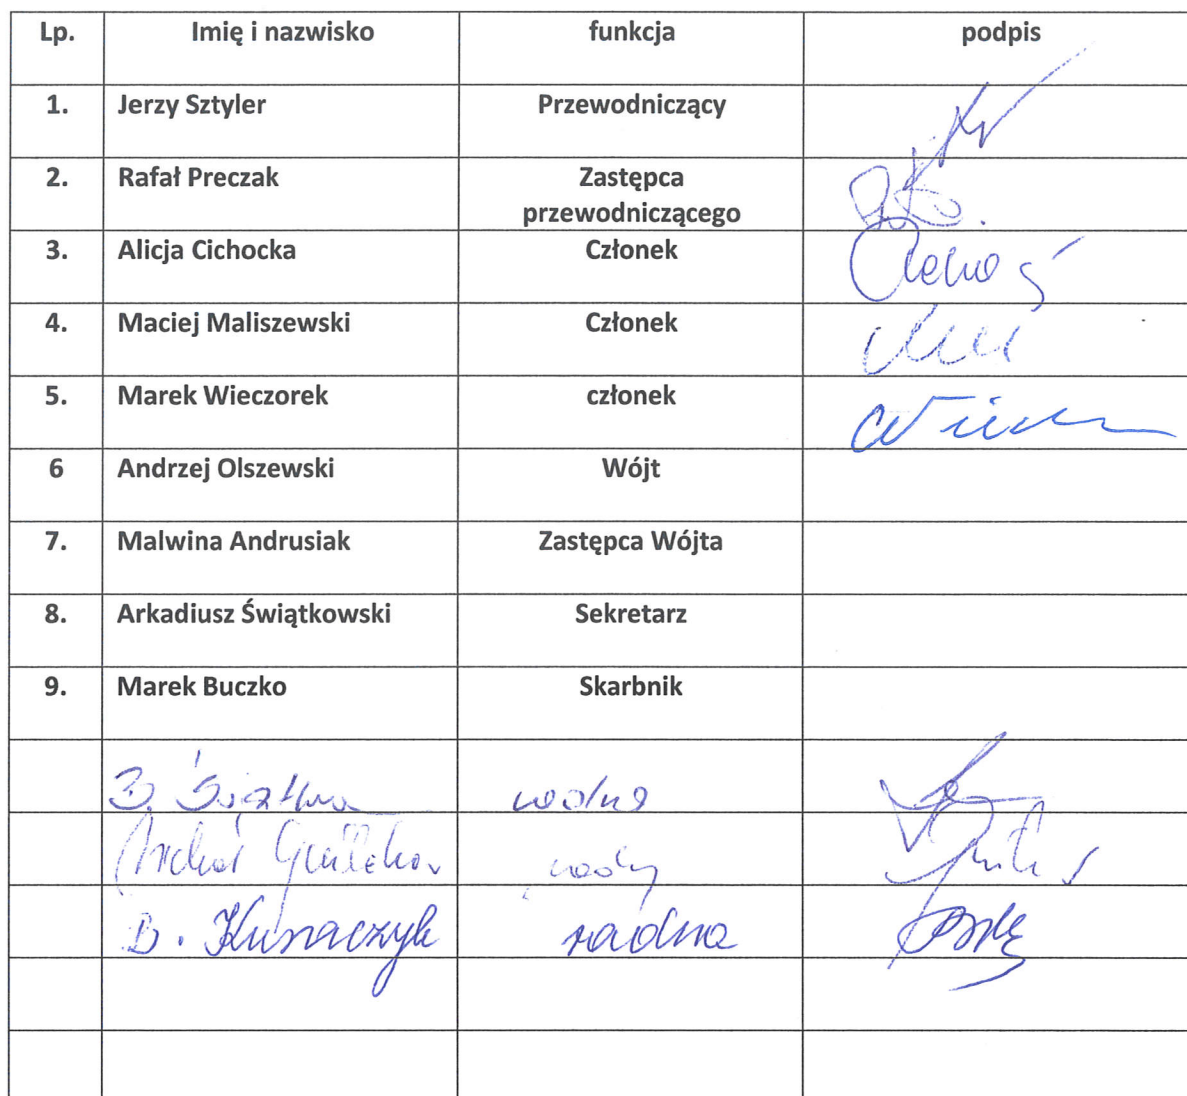 Lp. Imię i nazwisko funkcja podpis
1. Jerzy Sztyler Przewodniczący
2. Rafał Preczak Zastępca
przewodniczącego
3. Alicja Cichocka Członek
4. Maciej Maliszewski Członek
5. Marek Wieczorek członek
6 Andrzej Olszewski Wójt
7. Malwina Andrusiak Zastępca Wójta
8. Arkadiusz Świątkowski Sekretarz
9. Marek Buczko Skarbnik
radna
radny
B. radna